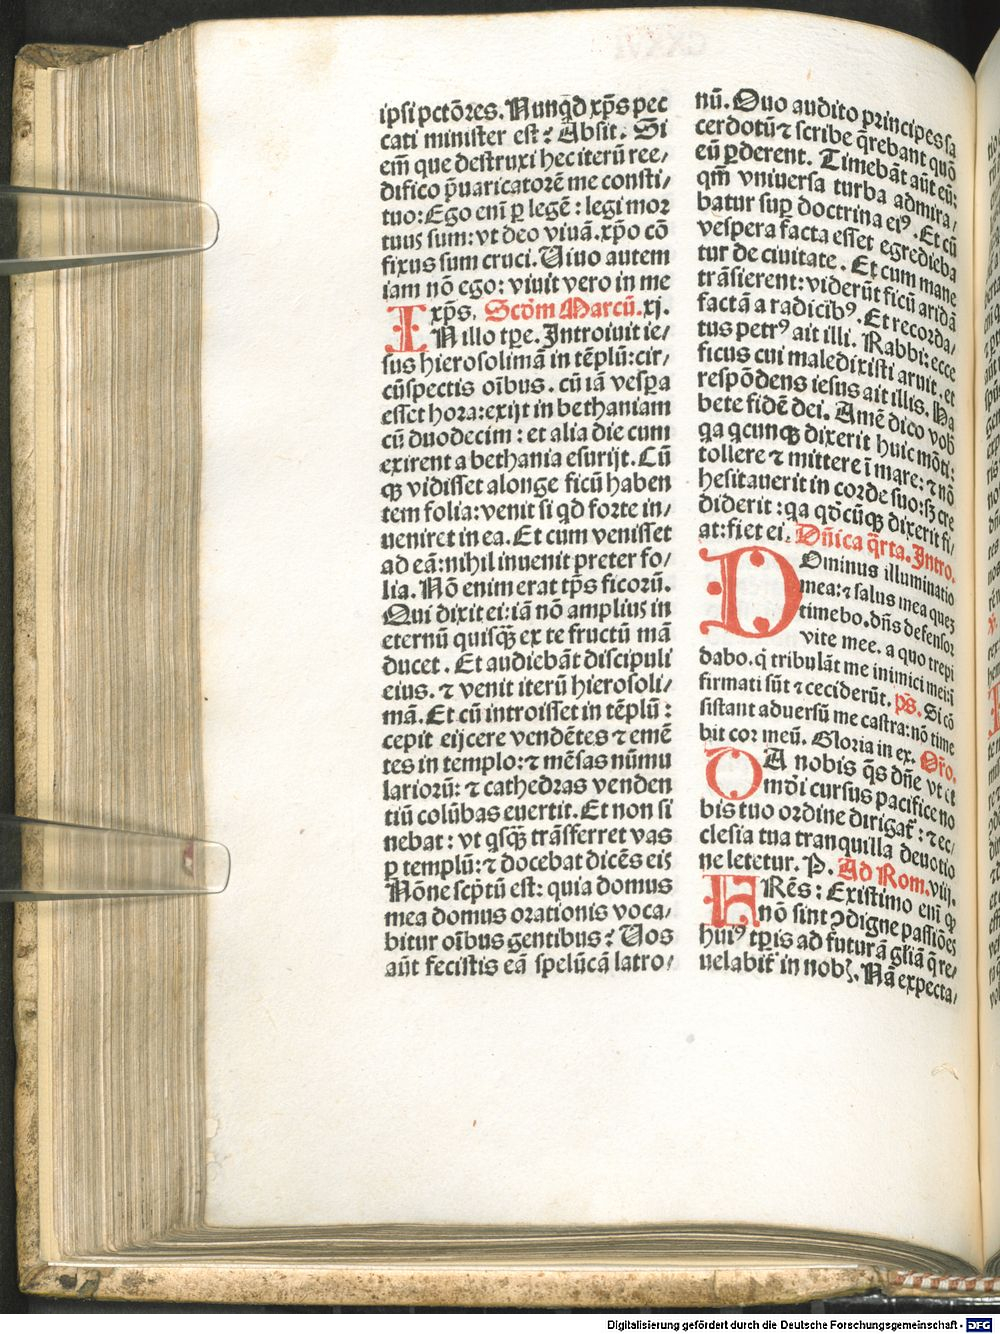 ipsi pctõres. Nunqͥd xp̃s pec
cati minister est? Absit. Si
em̃ que destruxi hec iterũ ree/
difico p̃uaricatorẽ me consti/
tuo: Ego eni ꝑ legẽ: legi mor
tuus sum: vt deo viuã. xp̃o cõ
fixus sum cruci. Uiuo autem
iam nõ ego: viuit vero in me
xp̃s. Scd̃m Marcũ. xj.
IN illo tp̃e. Introiuit ie/
sus hierosolimã in tẽplũ: cir/
cũspectis oĩbus. cũ iã vesꝑa
esset hora: exijt in bethaniam
cũ duodecim: et alia die cum
exirent a bethania esurijt. Cũ
qꝫ vidisset a longe ficũ haben
tem folia: venit si qͥd forte in/
ueniret in ea. Et cum venisset
ad eã: nihil inuenit preter fo/
lia. Nõ enim erat tp̃s ficorũ.
Qui dixit ei: iã nõ amplius in
eternũ quisqͣꝫ ex te fructũ mã
ducet. Et audiebãt discipuli
eius. ⁊ venit iterũ hierosoli/
mã. Et cũ introisset in tẽplũ:
cepit eijcere vendẽtes ⁊ emẽ
tes in templo: ⁊ mẽsas nũmu
lariorũ: ⁊ cathedras venden
tiũ colũbas euertit. Et non si
nebat: vt qͥsqͣꝫ trãsferret vas
ꝑ templũ: ⁊ docebat dicẽs eis
Nõne scp̃tũ est: quia domus
mea domus orationis voca/
bitur oĩbus gentibus? Uos
aũt fecistis eã spelũcã latro/
nũ. Quo audito principes sa
cerdotũ ⁊ scribe q̃rebant quõ
eũ ꝑderent. Timebãt aũt eũ:
qm̃ vniuersa turba admira/
batur suꝑ doctrina eiꝰ. Et cũ
vespera facta esset egredieba
tur de ciuitate. Et cum mane
trãsierent: viderũt ficũ aridã
factã a radicibꝰ. Et recorda/
tus petrꝰ ait illi. Rabbi: ecce
ficus cui maledixisti aruit. et
respõdens iesus ait illis. Ha
bete fidẽ dei. Amẽ dico vob̃
qa qcunqꝫ dixerit huic mõti:
tollere ⁊ mittere ĩ mare: ⁊ nõ
hesitauerit in corde suo: sꝫ cre
diderit: qa qd̃cũqꝫ dixerit fi/
at: fiet ei. Dñica q̃rta. Intro.
DOminus illuminatio
mea: ⁊ salus mea queꝫ
timebo. dñs defensor
vite mee. a quo trepi
dabo. q̃ tribulãt me inimici mei: ĩ
firmati sũt ⁊ ceciderũt. p̃s. Si cõ
sistant aduersũ me castra: nõ time
bit cor meũ. Gloria in ex. Or̃o.
DA nobis q̃s dñe vt et
mũdi cursus pacifice no
bis tuo ordine dirigat̃: ⁊ ec/
clesia tua tranquilla deuotio
ne letetur. P. Ad Rom. viij.
FRẽs: Existimo eni qꝙ
nõ sint ꝯdigne passiões
huiꝰ tp̃is ad futurã gl̃iã q̃ re/
uelabit̃ in nobꝫ. Nã expecta/
Digitalisierung gefördert durch die Deutsche Forschungsgemeinschaft - DFG